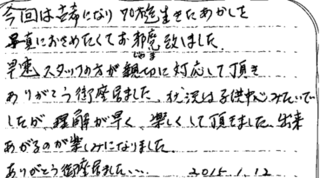 今回は古希になり70歳生きたあかしを
写真におさめたくてお邪魔致しました。
早速スタッフの方が親切に対応して頂き
ありがとう御座居ました。状況は子供中心みたいで
したが、理解が早く、楽しくして頂きました。出来
あがるのが楽しみになりました。
ありがとう御座居ました...
2015.1.12